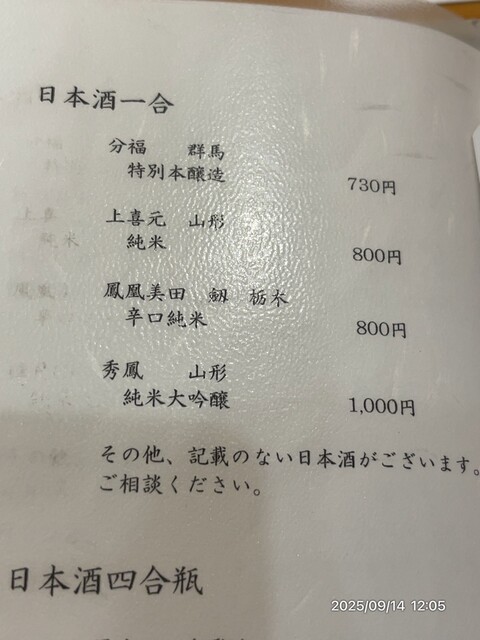 日本酒一合
分福　群馬
特別本醸造
730円
上喜元　山形
純米
800円
鳳凰美田　剱　栃木
辛口純米
800円
秀鳳　山形
純米大吟醸
1,000円
その他、記載のない日本酒がございます。
ご相談ください。
日本酒四合瓶
2025/09/14 12:05